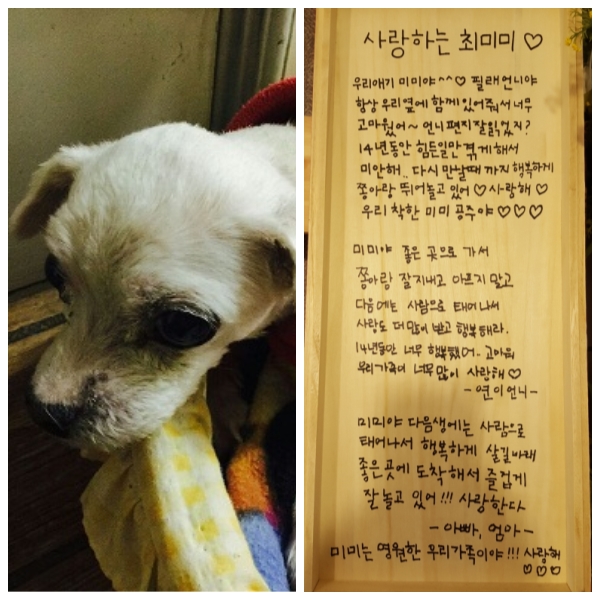 사랑하는 최미미 ♡
우리애기 미미야^^♡ 필래언니야
항상 우리 옆에 함께 있어줘서 너무
고마웠어~ 언니 편지 잘 읽었지?
14년동안 힘든일만 겪게해서
미안해.. 다시 만날때 까지 행복하게
쫑아랑 뛰어놀고 있어♡ 사랑해♡
우리 착한 미미 공주야♡♡♡
미미야 좋은 곳으로 가서
쫑아랑 잘지내고 아프지 말고
다음에는 사람으로 태어나서
사랑도 더 많이 받고 행복해라.
14년동안 너무 행복했어.. 고마워
우리가족이 너무 많이 사랑해♡
-연이언니-
미미야 다음생에는 사람으로
태어나서 행복하게 살길바래
좋은곳에 도착해서 즐겁게
잘 놀고 있어!!! 사랑한다
-아빠, 엄마-
미미는 영원한 우리가족이야!!! 사랑해
♡♡♡